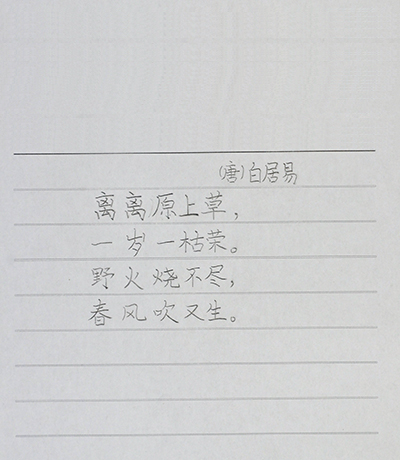 (唐)白居易
离离原上草,
一岁一枯荣。
野火烧不尽,
春风吹又生。